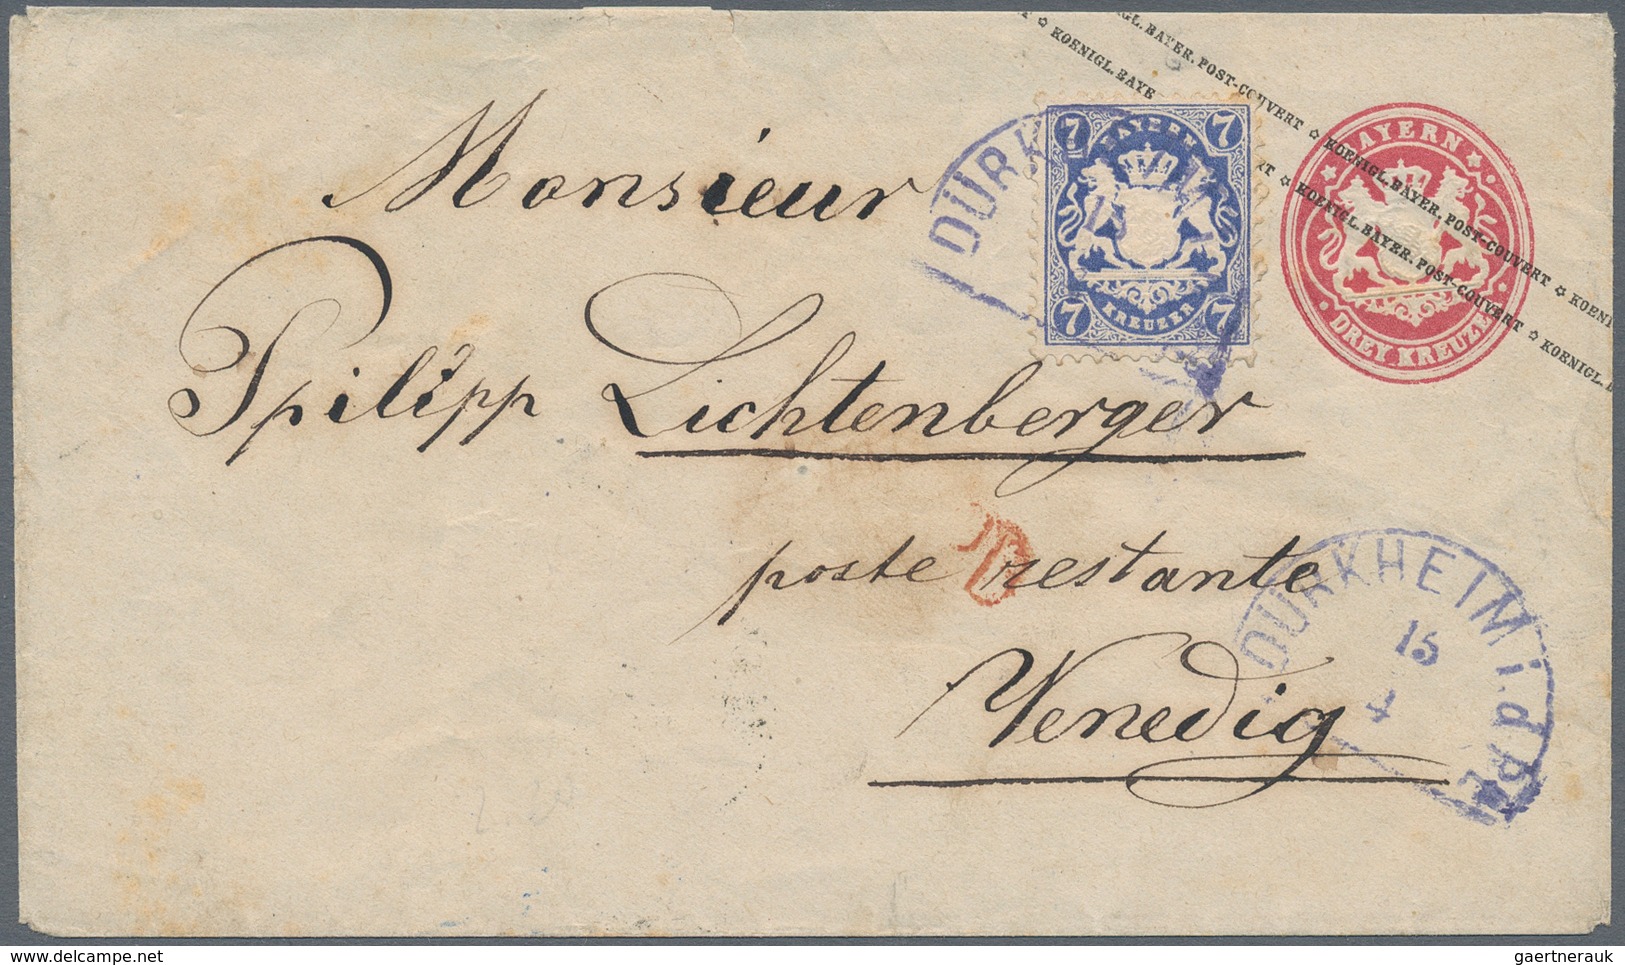 GL. BAYER. POST-COUVERT ✩ KOENIGL. BAYER. POST-COUVERT ✩ KOENI
T ✩ KOENIGL. BAYE
RT ✩ KOENIGL. BAYER. POST-COUVERT ✩ KOENIGL. B
7 BAYERN 7
7 KREUZER 7
BAYERN
DREY KREUZE
DÜRKH
Monsieur
Ppilipp Lichtenberger
poste restante
Venedig
DÜRKHEIM i. d. Pf.
15
4
delcampe.net
gaertnerauk